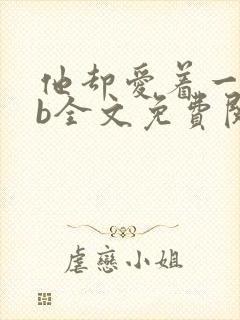 他却爱着一
b全文免費閱
虐戀小姐